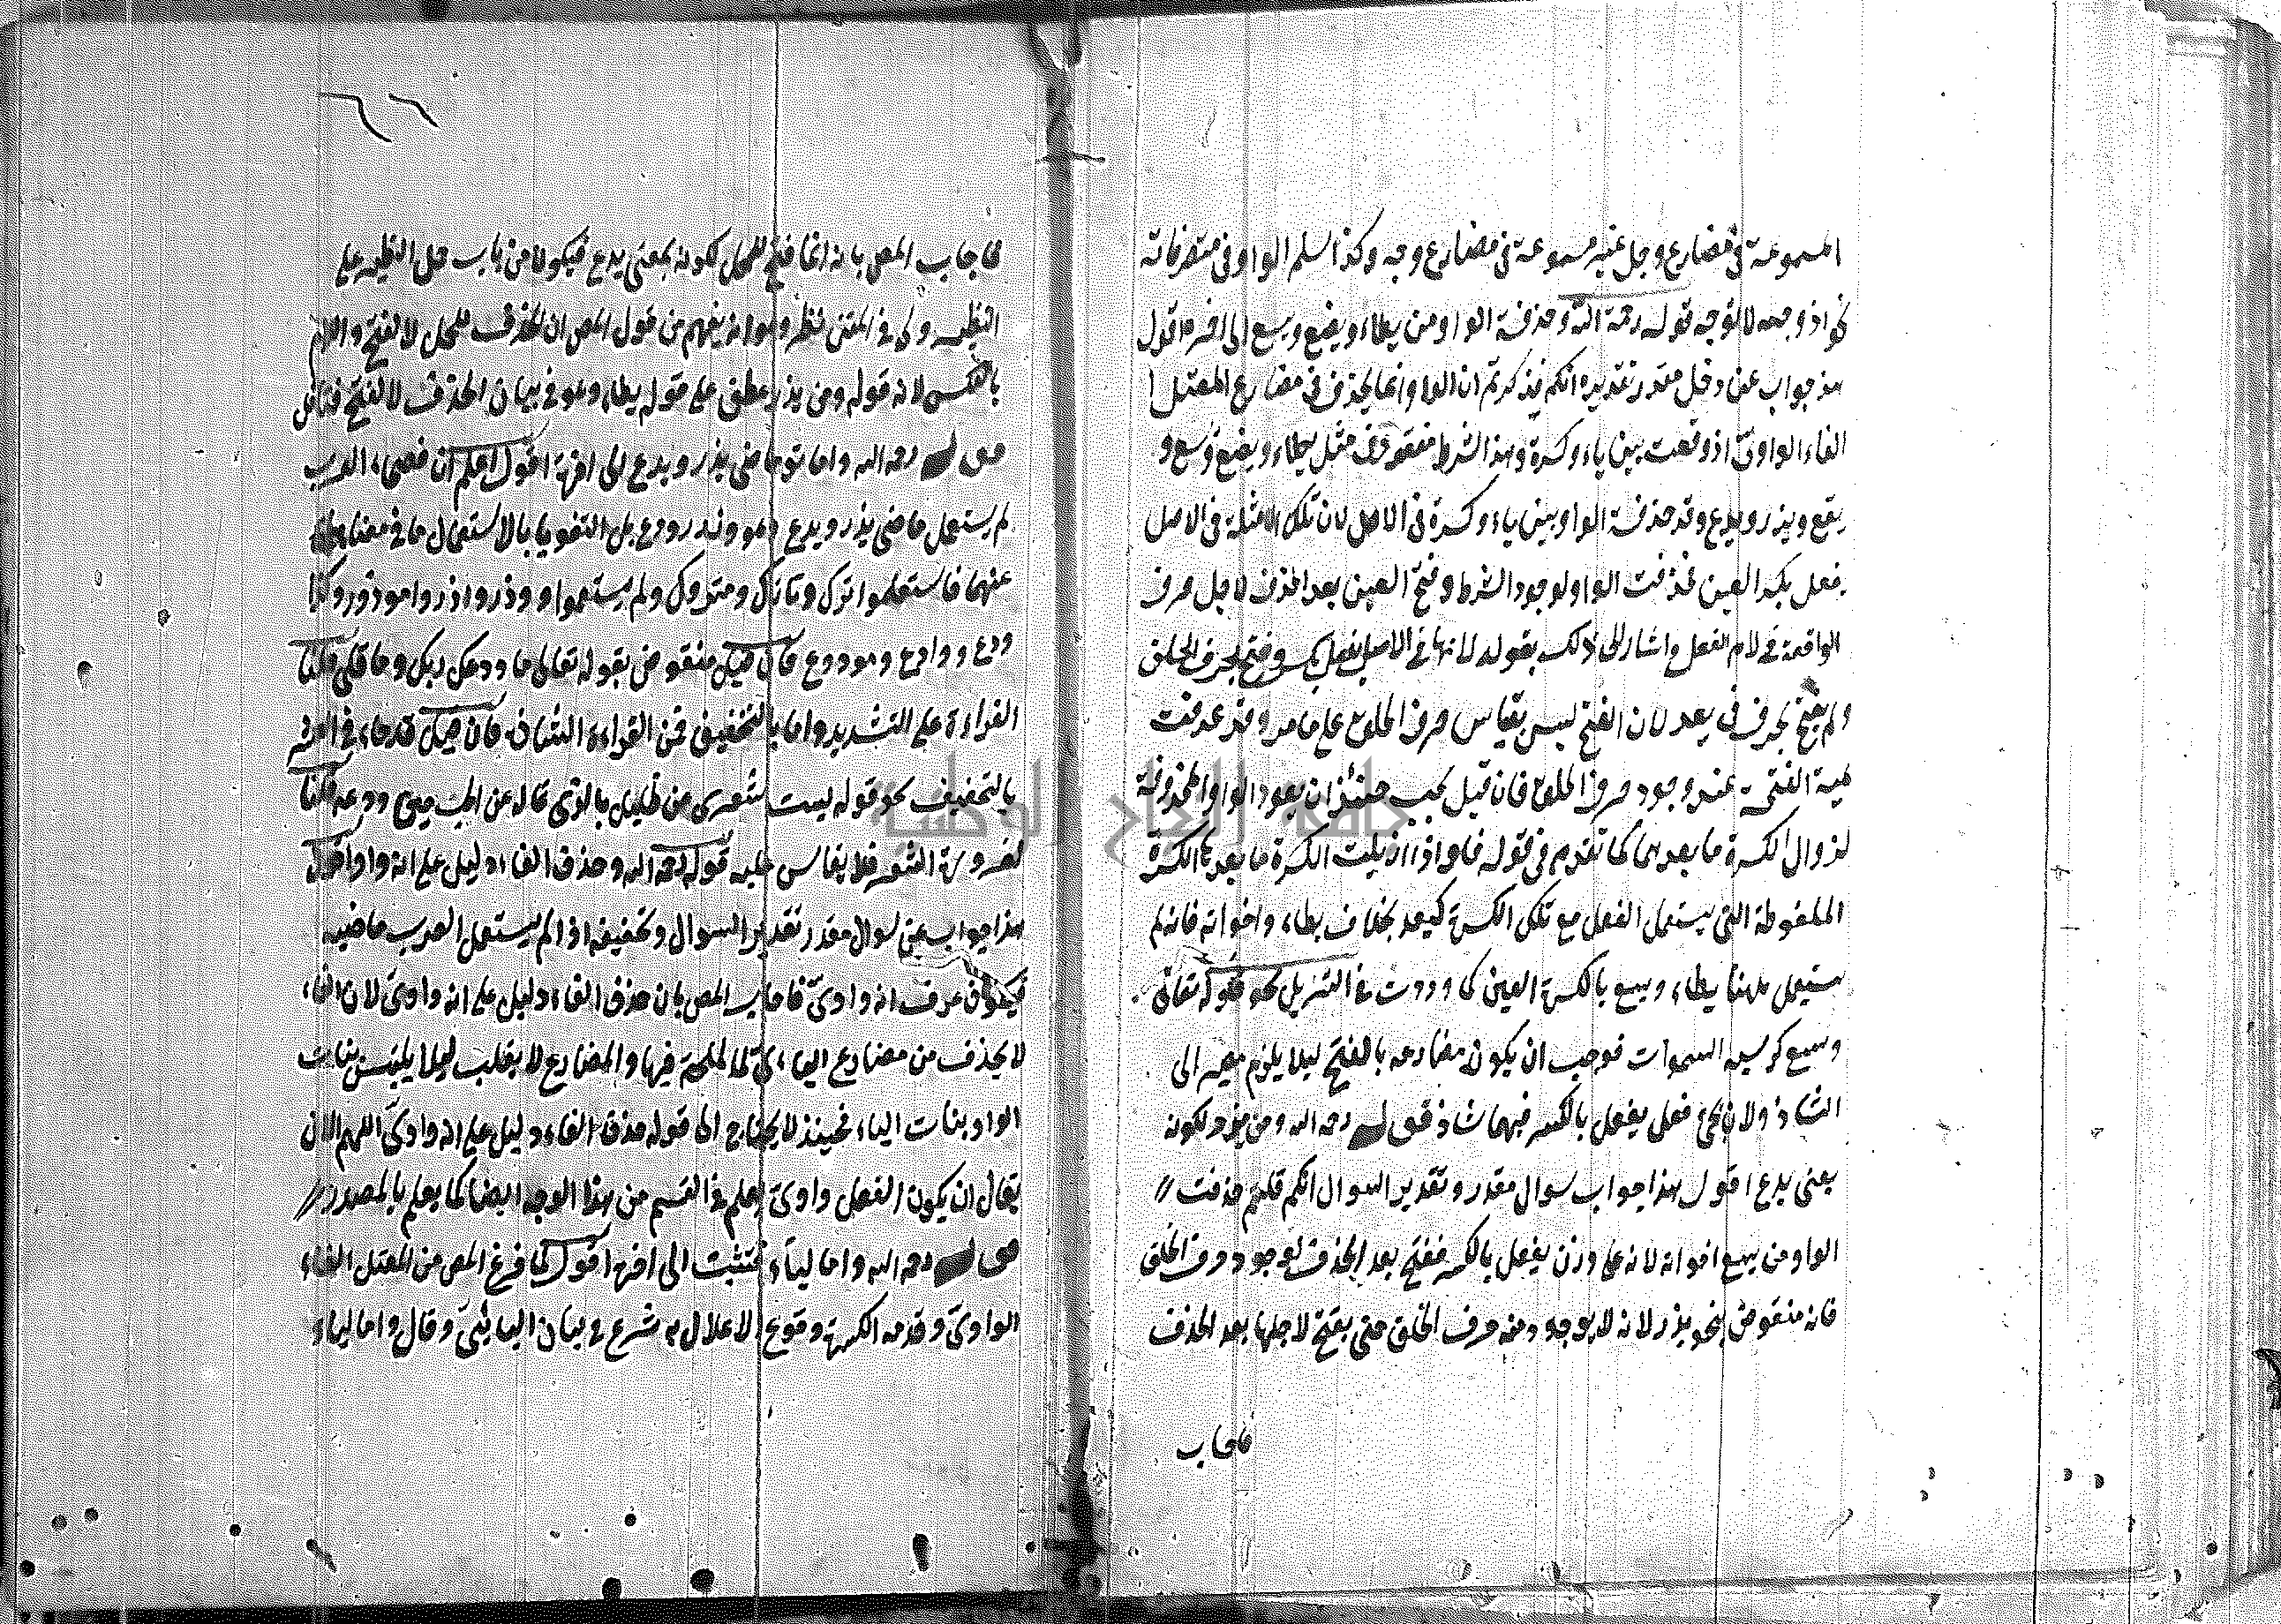 المسموعة في مضارع وجل غير مسموعة في مضارع وجه وكذا سلم الواو في متصرفاته
اذ وجهه لا توجه قوله رحمة الله وحذفت الواو من يطاء ويضع ويسع الى اخره اقول
هذا جواب عن دخل مقدر تقديره انكم ذكرتم ان الواو انما يحذف في مضارع المعتل
الفاء الواوى اذ وقعت بين ياء وكسرة وهذا الشرط مفقود في مثل يطاء ويضع ويسع و
يقع ويذر ويدع وقد حذفت الواو بين ياء وكسرة في الاصل لان تلك الامثلة في الاصل
يفعل بكسر العين فحذفت الواو لوجود الشرط وفتح العين بعد الحذف لاجل حرف
الواقعة في لام الفعل واشار الى ذلك بقوله لانها في الاصل يفعل بكسر وفتح لحرف الحلق
ولم يفتح لحرف في يعد لان الفتح ليس بقياس حرف الحلق على ما مر وقد عرفت
الفتحة عند وجود حرف الحلق فان قيل يجب حينئذ ان يعود الواو المحذوفة
لزوال الكسرة ما بعدها كما تقدم في قوله فاذا ازيلت الكسرة ما بعدها الكسرة
الملفوظة التى يستعمل الفعل مع تلك الكسرة كيعد بخلاف يطاء واخواته فانه لم
يستعمل ههنا يطاء ويسع بالكسرة العين كما وردت في التنزيل نحو قوله تعالى
وسع كرسيه السموات فوجب ان يكون مضارعه بالفتح ليلا يلزم مصير الى
الشاذ ولان مجئ فعل يفعل بالكسر فيهما شاذ قوله رحمه الله ومن يذر لكونه
بمعنى يدع اقول هذا جواب سوال مقدر وتقدير السوال انكم قلتم حذفت
الواو من يسع اخواته لانه على وزن يفعل بالكسر ففتح بعد الحذف لوجود حرف الحلق
فانه منقوض بنحو يذر لانه لا يوجد منه حرف الحلق حتى يفتح لاجلها بعد الحذف
فاجاب
فاجاب المص بانه انما فتح للحمل لكونه بمعنى يدع فيكون من باب حمل النظير على
النظير ولى في المتن نظر وهو انه يفهم من قول المص ان الحذف للحمل لا الفتح والامر
بالعكس لانه قوله ومن يذر عطف على قوله يطاء وهو في بيان الحذف لا الفتح فتامل
قوله رحمه الله واما توا ماضى يذر ويدع الى اخره اقول اعلم ان فصحاء العرب
لم يستعمل ماضى يذر ويدع وهو وذر وودع بل التفوا بالاستعمال ما في معناهما
عنهما فاستعملوا ترك وتارك ومتروك ولم يستعملوا وذر واذر وموذور وكذا
ودع ووادع ومودوع فان قيل منقوض بقوله تعالى ما ودعك ربك وما قلى قلنا
القراءة على التشديد واما بالتخفيف فمن القراءة الشاذ فان قيل قد جاء في الشعر
بالتخفيف نحو قوله ليت شعرى عن خليلى ما الذى غاله عن الحب حتى ودعه قلنا
لضرورة الشعر فلا يقاس عليه قوله رحمه الله وحذف الفاء دليل على انه واو اقول
هذا جواب عن سوال مقدر تقدير السوال وتحقيقه اذا لم يستعمل العرب ماضيه
فكيف عرف انه واوى فاجاب المص بان حذف الفاء دليل على انه واوى لان الفاء
لا يحذف من مضارع الياء فيها والمضارع لا يقلب ليلا يلتبس بنات
الواو بنات الياء فحينئذ لا يحتاج الى قوله حذف الفاء دليل على انه واوى اللهم الا ان
يقال ان يكون الفعل واوى يعلم في القسم من هذا الوجه ايضا كما يعلم بالمصدر
قوله رحمه الله واما لياء فتثبت الى اخره اقول لما فرغ المص من المعتل الفاء
الواوى وقدمه الكسرة وقوع الاعلال به شرع في بيان اليائى وقال واما لياء